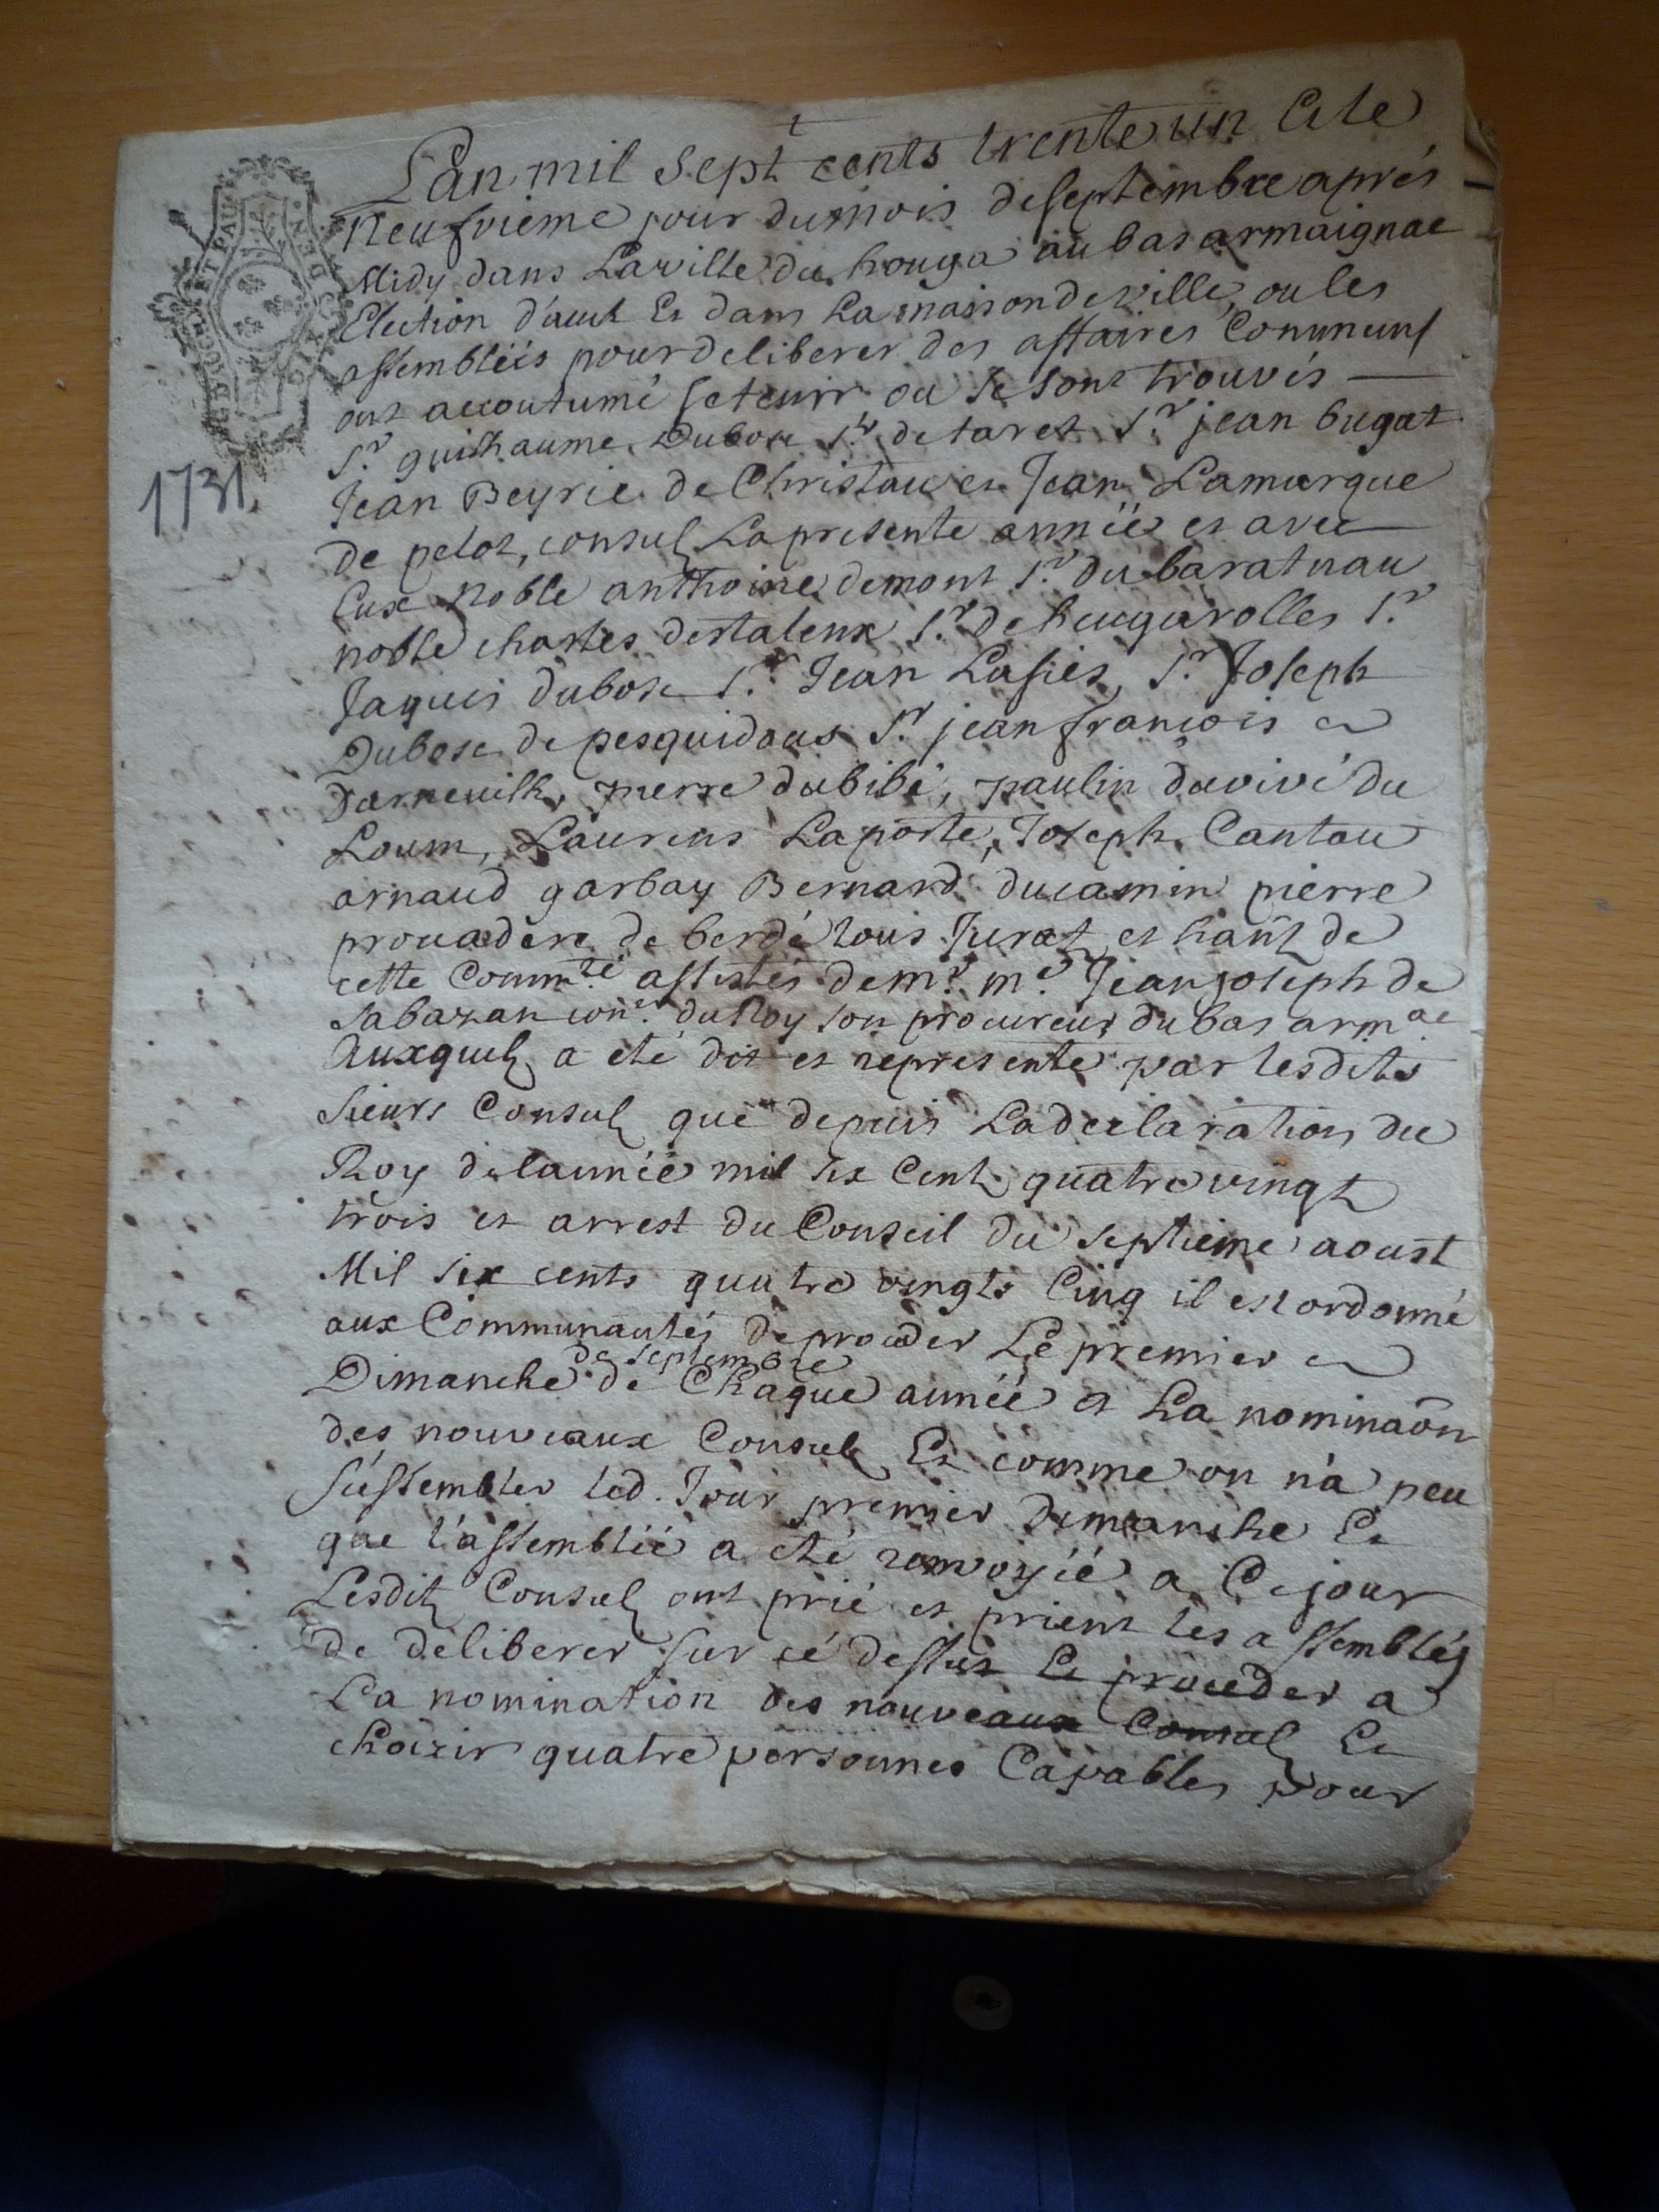 L'an mil sept cents trente un Et le
neufvieme jour du mois de septembre aprés
Midy dans La ville du houga au bas armaignac
Election d'auch Et dans La maison de ville, ou les
assembléés pour deliberer des affaires Communs
ont accoutumé se tenir ou se sont trouvés
1731 S.r guilhaume Dubosc s.r de taret S.r jean bugat
Jean Beyrie de Christau et Jean Lamarque
de pelot, consuls La presente année et avec
Eux noble anthoine demont s.r du baratnau
noble charles destalenx s.r de heugarolles S.r
Jaques dubosc S.r Jean Lasies, S.r Joseph
Dubosc de pesquidous S.r jean françois
Darneuilh, pierre dubibé, paulin duvivé du
Loum, Laurens Laporte, Joseph Cantau
arnaud garbay Bernard ducamin pierre
prouadere de berdé tous Jurats et hants de
cette Comm.té assistés de m.r m.e Jean joseph de
Sabazan con.er du Roy son procureur du bas arm.ac
Auxquels a eté dit et represente par lesdits
sieurs Consuls que depuis La declaration du
Roy de lannée mil six Cents quatre vingt
trois et arrest du Conseil du septieme aoust
Mil six cents quatre vingts Cinq il est ordonné
aux Communautés de proceder Le premier
de septembre
Dimanche de Chaque année a La nominaõn
des nouveaux Consuls Et comme on n'a peu
s'assembler led. Jour premier dimanche Et
que l'assemblée a eté renvoyéé a Ce jour
Lesdits Consuls ont prié et prient les assemblés
de deliberer sur cé dessus Et proceder a
La nomination des nouveaux Consuls Et
choizir quatre personnes Capables pour